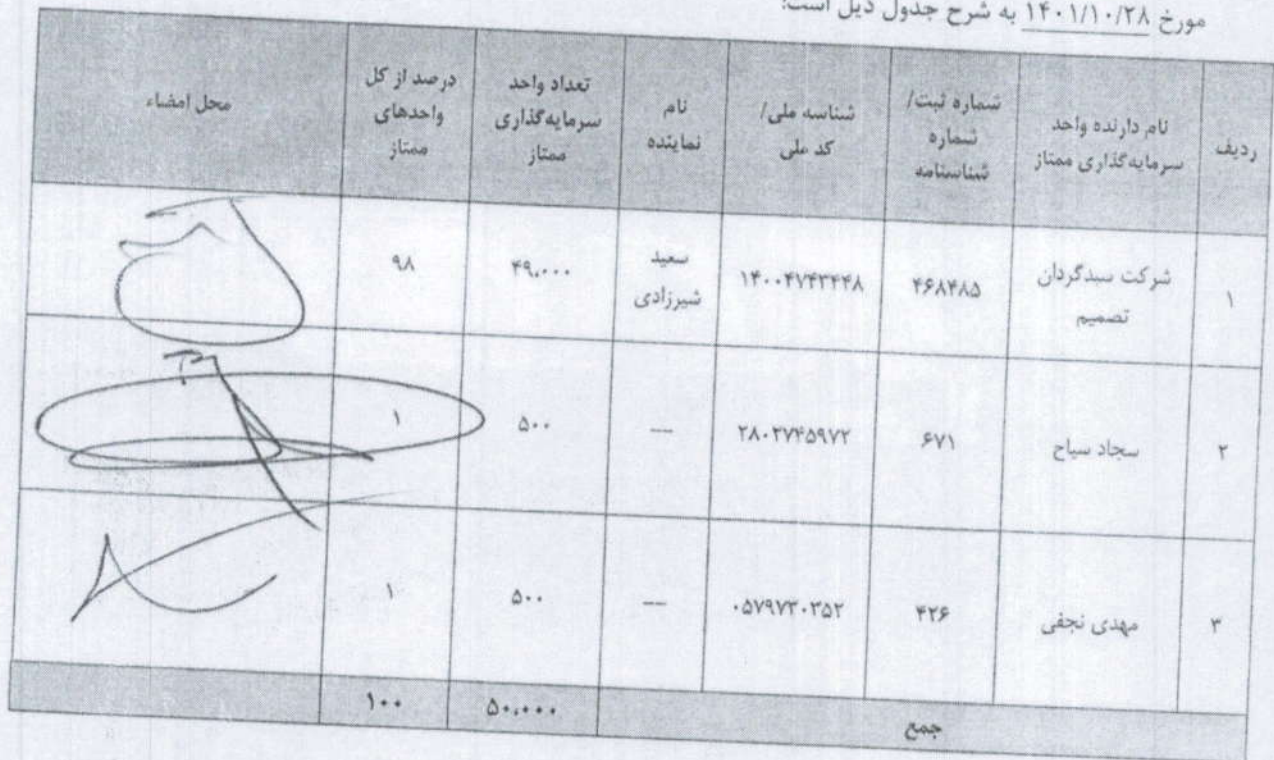 مورخ ۱۴۰۱/۱۰/۲۸ به شرح جدول ذیل است:
ردیف | نام دارنده واحد سرمایه‌گذاری ممتاز | شماره ثبت/ شماره شناسنامه | شناسه ملی/ کد ملی | نام نماینده | تعداد واحد سرمایه‌گذاری ممتاز | درصد از کل واحدهای ممتاز | محل امضاء
۱ | شرکت سبدگردان تصمیم | ۴۶۸۴۸۵ | ۱۴۰۰۴۷۴۳۴۴۸ | سعید شیرزادی | ۴۹,۰۰۰ | ۹۸
۲ | سجاد سیاح | ۶۷۱ | ۲۸۰۲۷۴۵۹۷۲ | --- | ۵۰۰ | ۱
۳ | مهدی نجفی | ۴۲۶ | ۰۵۷۹۷۳۰۳۵۲ | --- | ۵۰۰ | ۱
جمع | ۵۰,۰۰۰ | ۱۰۰